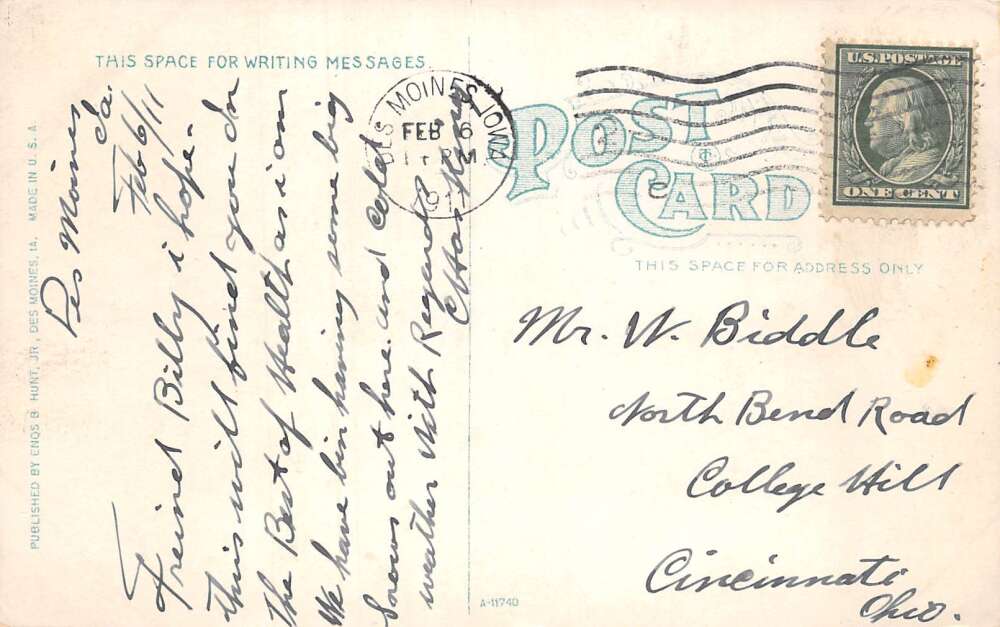 THIS SPACE FOR WRITING MESSAGES
Des Moines
Ia.
Feb 6/11
Freind Billy i hope
this will find you in
the Best of Health as i am
We have bin having some big
Snows out here. and cold
weather With Regards
Chas
DES MOINES, IOWA
FEB 6
PM
191
POST CARD
U.S. POSTAGE
ONE CENT
THIS SPACE FOR ADDRESS ONLY
Mr. W. Biddle
North Bend Road
College Hill
Cincinnati
Ohio.
A-11740
PUBLISHED BY ENOS B. HUNT, JR., DES MOINES, IA. MADE IN U.S.A.